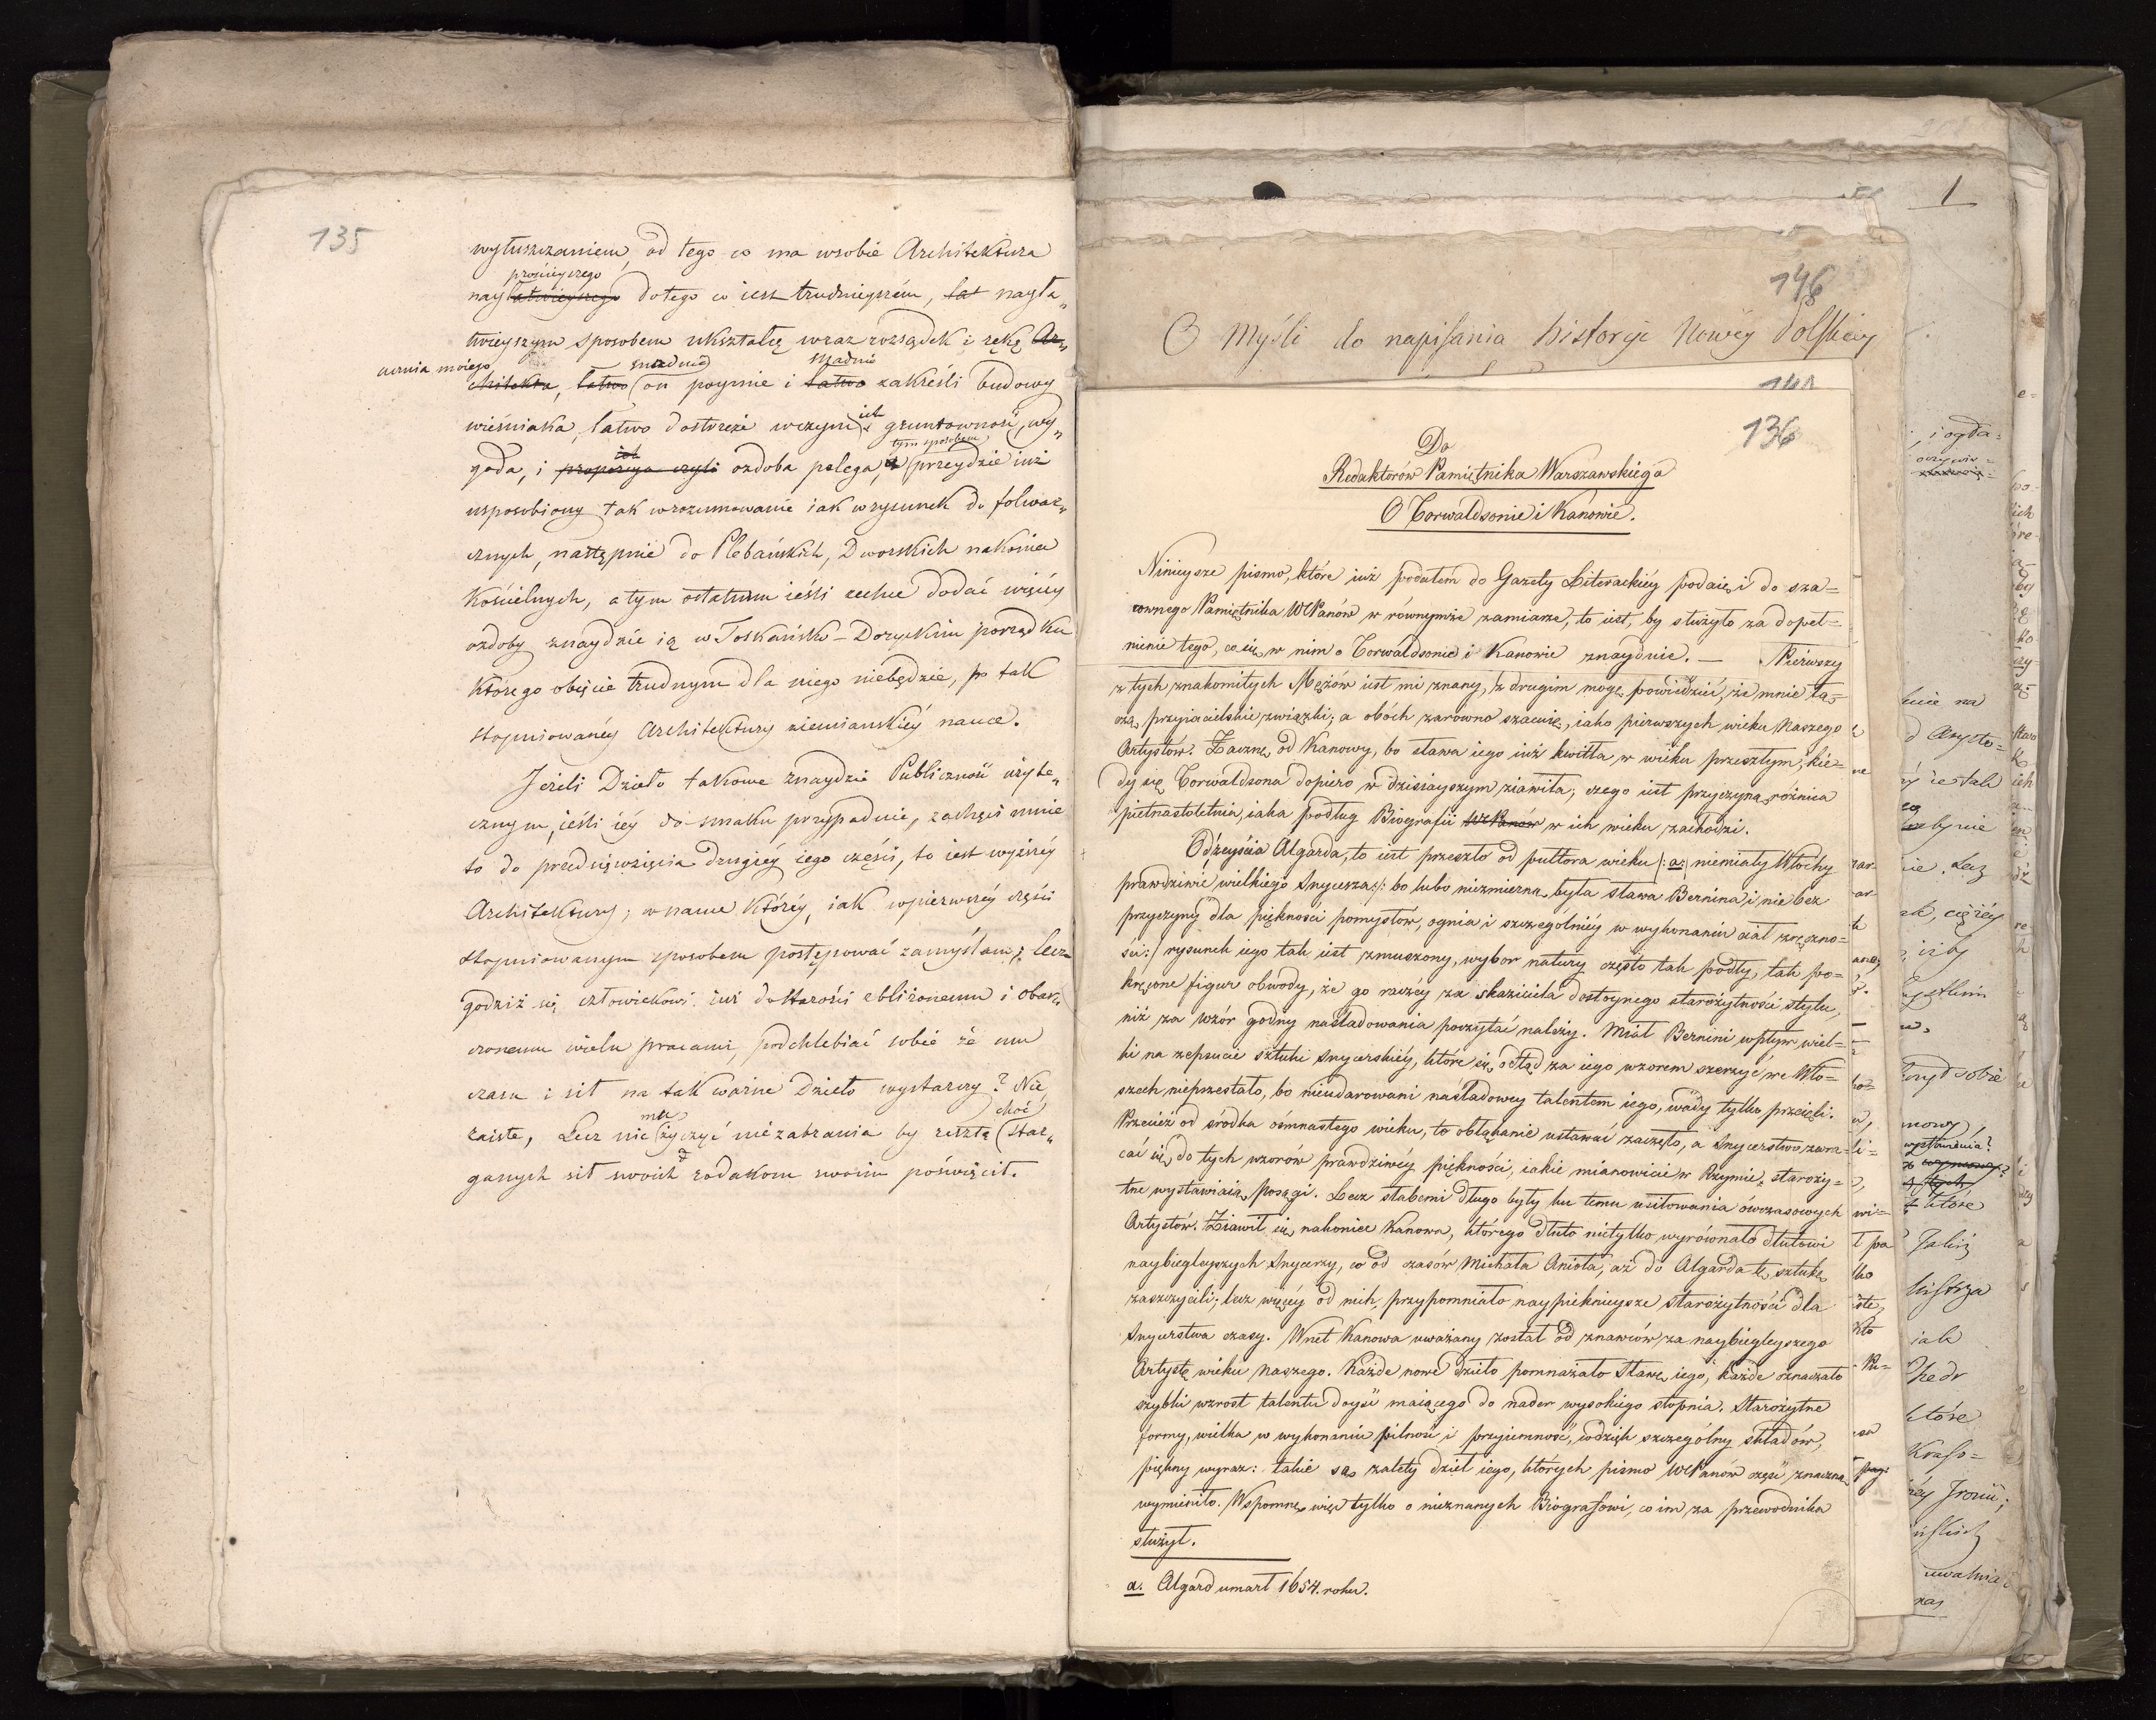 135
wyłuszczaniem, od tego co ma wsobie Architektura
prościeyszego
nay łatwieyszego dotego co iest trudnieyszém, tat nayła„
twieyszym sposobem ukształcę wraz rozsądek i rękę Ar„
ucznia moiego snadno snadnie
chitekta, łatwo on poymie i łatwo zakreśli budowy
wieśniaka, łatwo dostrzeże wczym ich gruntowność, wy„
tym sposobem
goda, i ich ozdoba polega, przeydzie iuż
usposobiony tak wrozumowanie iak wrysunek do folwar„
cznych, następnie do Plebańskich, Dworskich nakoniec
Kościelnych, a tym ostatnim ieśli zechce dodać więcéy
ozdoby znaydzie ią w Toskańsko-Doryckim porządku
którego obięcie trudnym dla niego niebędzie, po tak
stopniowanéy Architektury ziemianskiéy nauce.
Jeżeli Dzieło takowe znaydzie Publiczność użyte„
cznym, ieśli iéy do smaku przypadnie, zachęci mnie
to do przedsięwzięcia drugiéy iego części, to iest wyższéy
Architektury; w nauce któréy, iak wpierwszéy części
stopniowanym sposobem postępować zamyślam; lecz
godziż się człowiekowi iuż do starości zbliżonemu i obar„
czonemu wielu pracami, podchlebiać sobie że mu
czasu i sił na tak ważne Dzieło wystarczy? Nie
mu choć
zaiste, Lecz nie życzyć niezabrania by resztę star„
ganych sił swoich rodakom swoim poświęcił.
1
146
O Myśli do napisania historyi Nowéy Polskiéy
141
136
Do
Redaktorów Pamiętnika Warszawskiego
O Torwaldsonie i Kanowie.
Ninieysze pismo, które iuż podałem do Gazety Literackiéy podaię i do sza=
cownego Pamiętnika WPanów w równymże zamiarze, to iest, by służyło za dopeł=
nienie tego, co się w nim o Torwaldsonie i Kanowie znayduie. — Piérwszy
z tych znakomitych Mężów iest mi znany, z drugim mogę powiedzieć, że mnie łą=
czą przyiacielskie związki; a obóch zarówno szacuię, iako pierwszych wieku Naszego
Artystów. Zacznę od Kanowy, bo sława iego iuż kwitła w wieku przeszłym, kie=
dy się Torwaldsona dopiero w dzisieyszym ziawiła; czego iest przyczyną różnica
pietnastoletnia, iaka podług Biografii WPanów w ich wieku zachodzi.
Od zeyścia Algarda, to iest przeszło od półtora wieku /: a :/ niemiały Włochy
prawdziwie wielkiego Snycerza; /: bo lubo niezmierna była sława Bernina i nie bez
przyczyny dla piękności pomysłów, ognia i szczególniéy w wykonaniu ciał zręczno=
ści :/ rysunek iego tak iest zmuszony, wybor natury często tak podły, tak po=
kręcone figur obwody, że go raczéy za skaziciela dostoynego starożytności stylu,
niż za wzór godny naśladowania poczytać należy. Miał Bernini wpływ wiel=
ki na zepsucie sztuki snycerskiéy, które się odtąd za iego wzorem szerzyć we Wło=
szech nieprzestało, bo nieudarowani naśladowcy talentem iego, wady tylko przeięli.
Przecież od środka ośmnastego wieku, to obłąkanie ustawać zaczęło, a Snycerstwo zwra=
cać się do tych wzorów prawdziwéy piękności, iakie mianowicie w Rzymie staroży=
tne wystawiaią posągi. Lecz słabemi długo były ku temu usiłowania ówczasowych
Artystów. Ziawił się nakoniec Kanowa, którego dłuto nietylko wyrównało dłutowi
naybiegleyszych Snycerzy, co od czasów Michała Anioła, aż do Algarda tę sztukę
zaszczycili; lecz więcéy od nich, przypomniało naypieknieysze starożytności dla
Snycerstwa czasy. Wnet Kanowa uważany został od znawców za naybiegleyszego
Artystę wieku naszego. Każde nowe dzieło pomnażało sławę iego, każde oznaczało
szybki wzrost talentu doyść maiącego do nader wysokiego stopnia. Starożytne
formy, wielka w wykonaniu pilność i przyiemność, wdzięk szczególny składów,
piękny wyraz: takie są zalety dzieł iego, których pismo WPanów część znaczną
wymieniło. Wspomnę więc tylko o nieznanych Biografowi, co im za przewodnika
służył.
a. Algard umarł 1654. roku.